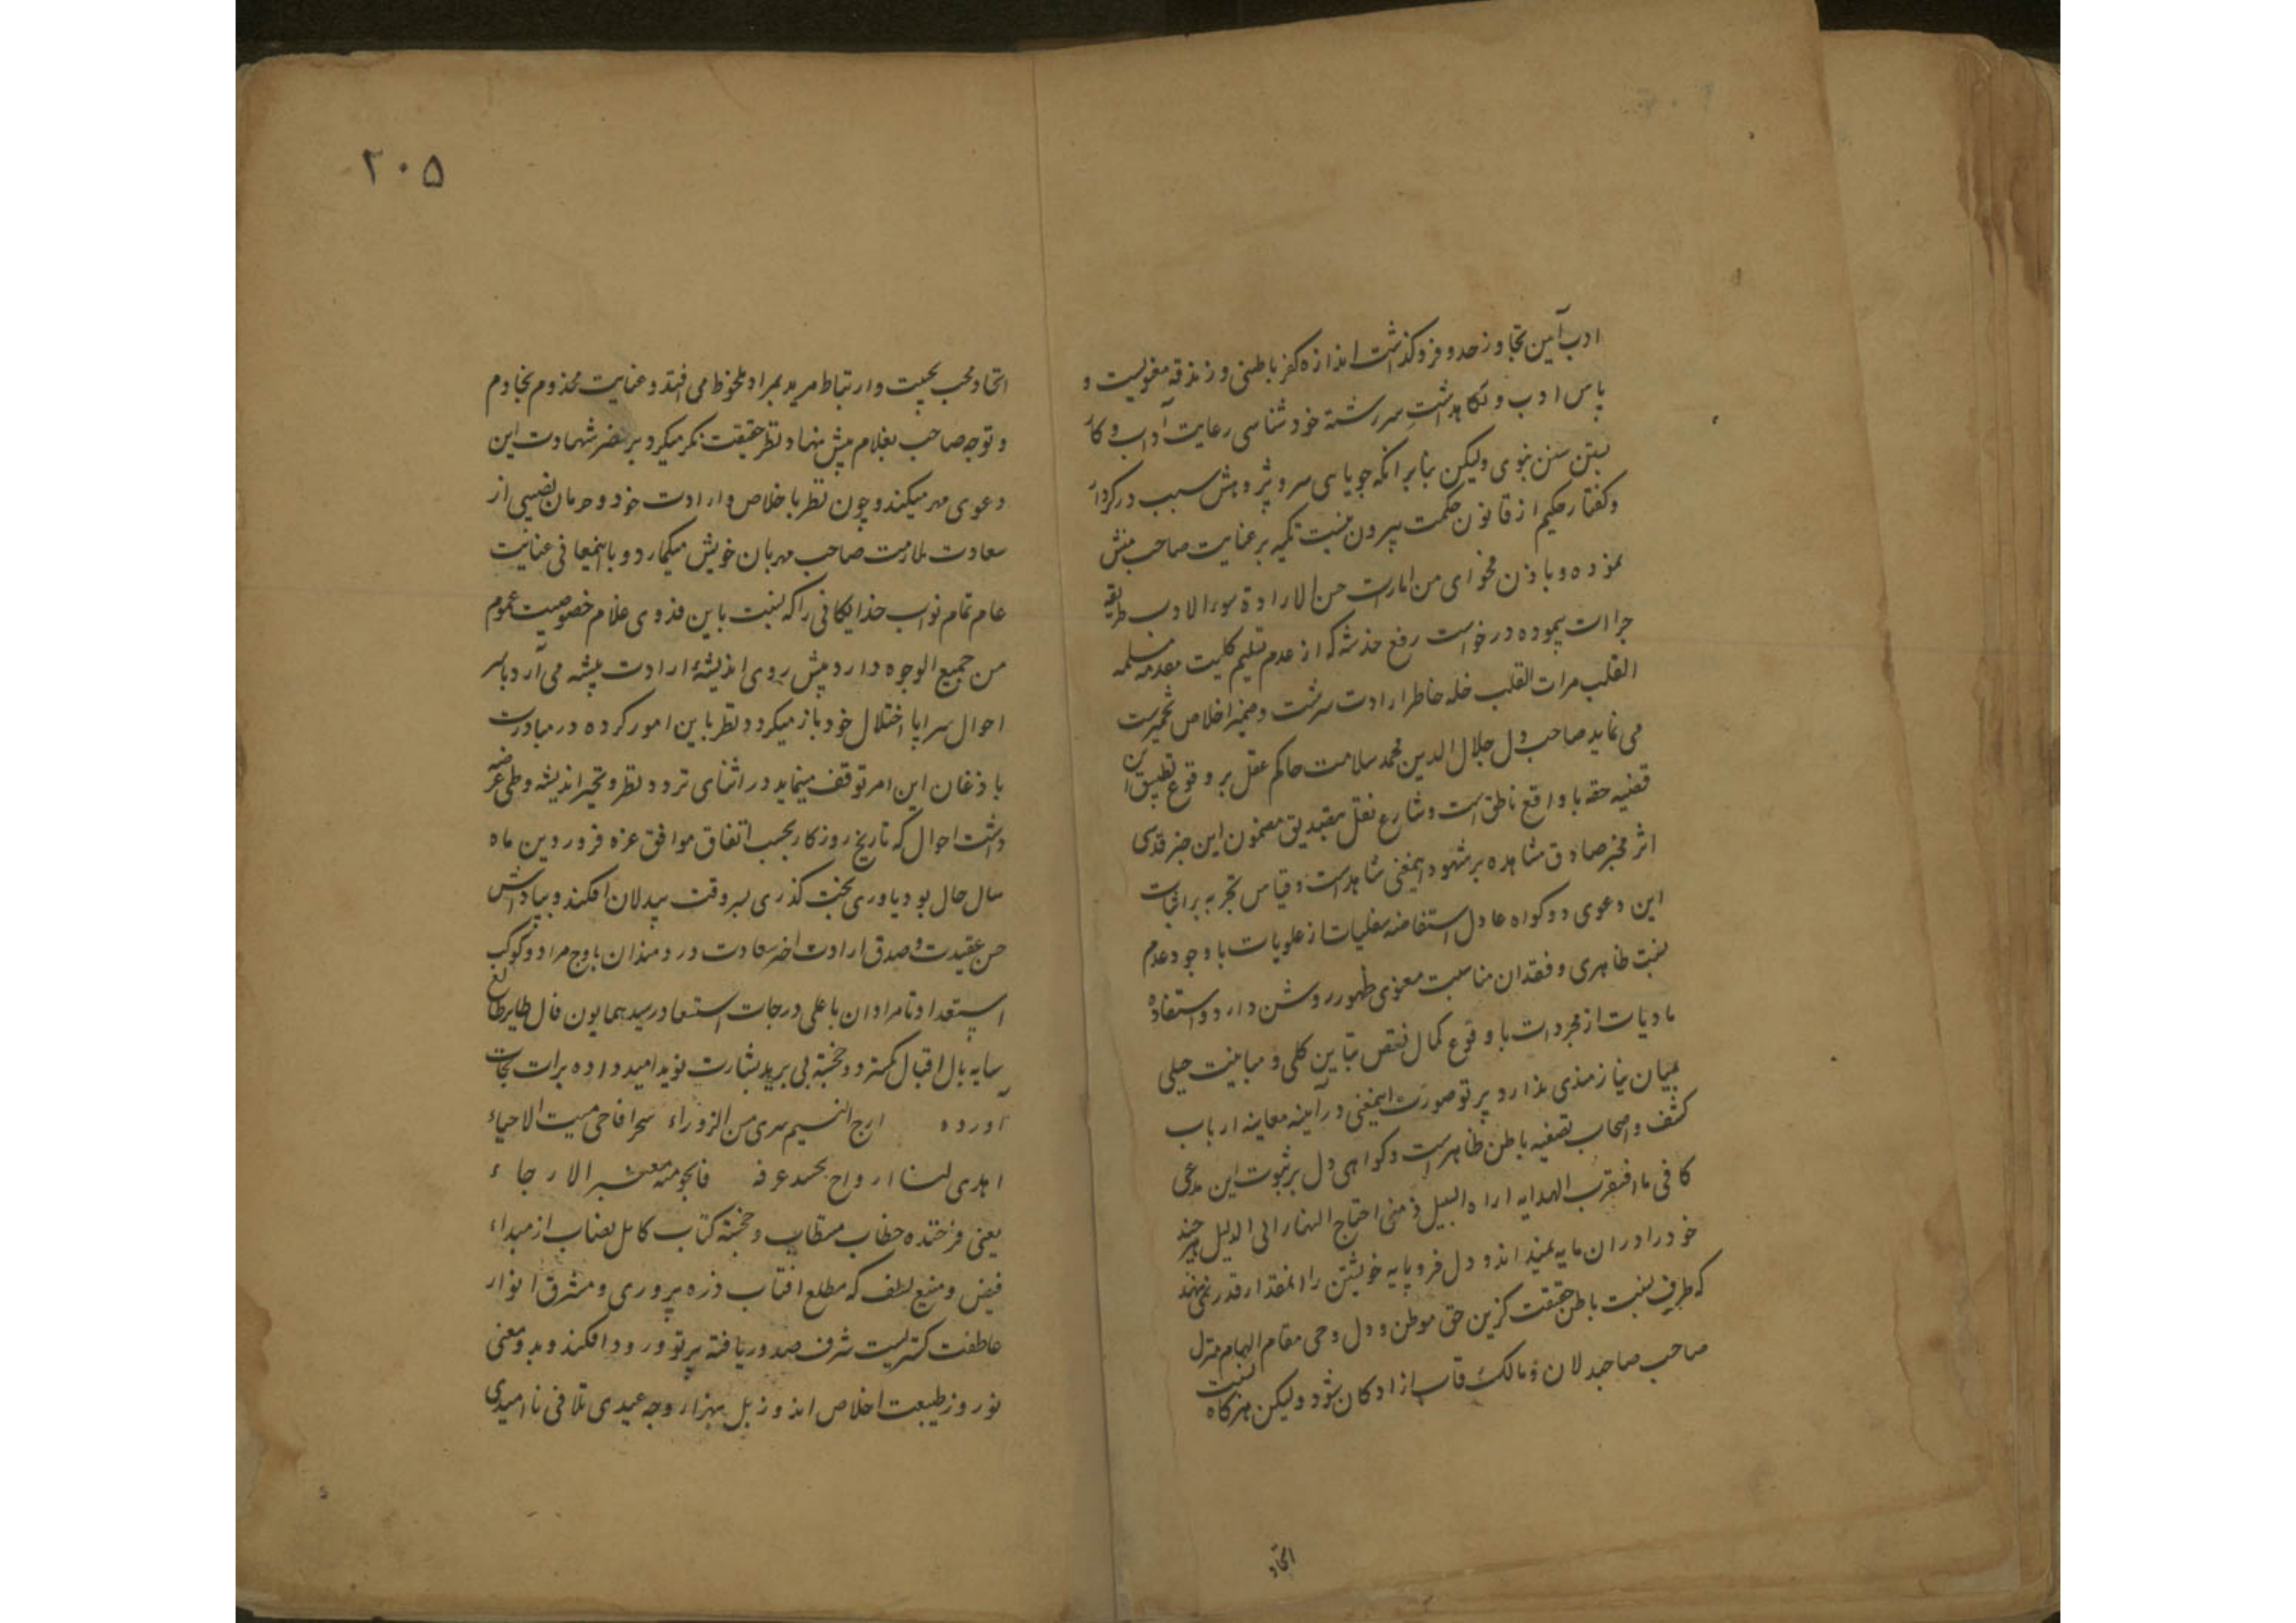 ادب آیین تجاوز حد و فرو گذاشت اندازه کفر باطنی و زندقه معنویست و
پاس ادب و نکاهداشت سررشته خودشناسی رعایت آداب و کار
بستن سنن نبوی ولیکن بنابر انکه جویایی سر و پژوهش سبب در کردار
و کفتار حکیم از قانون حکمت بیرون نیست تکیه بر عنایت صاحب منش
نموده و باذن فحوای من امارت حسن الارادة سوء الادب طریقه
جراات پیموده درخواست رفع خدشه که از عدم تسلیم کلیت مقدمه مسلمه
القلب مرات القلب خله خاطر ارادت سرشت و ضمیر اخلاص تخمیرست
می نماید صاحب دل جلال الدین محمد سلامت حاکم عقل بر وقوع تطبیق این
قضیه حقه با واقع ناطق است و شارع نقل بتصدیق مضمون این خبر قدسی
اثر مخبر صادق مشاهده بر شهود اینمعنی شاهدست و قیاس تجربه بر اثبات
این دعوی دو کواه عادل استفاضه سفلیات از علویات با وجود عدم
نسبت ظاهری و فقدان مناسبت معنوی ظهور روشن دارد و استفاده
مادیات از مجردات با وقوع کمال نقص تباین کلی و مباینت جلی
ببیان نیازمندی ندارد پرتو صورت اینمعنی در آینه معاینه ارباب
کشف و اصحاب تصفیه باطن ظاهرست و کواهی دل بر ثبوت این مدعی
کافی ما افتقرب الهدایه اراه السبیل و متی احتاج النهار الی الدلیل هر چند
خود را در ان مایه نمیداند و دل فرو پایه خویشتن را انمقدار قدر نمی نهد
که طرف نسبت باطن حقیقت کزین حق موطن و دل وحی مقام الهام منزل
صاحب صاحبدلان و مالک رقاب ازادکان شود ولیکن هرکاه نسبت
اتحاد
۲۰۵
اتحاد محب بحبیب و ارتباط مرید بمراد ملحوظ می افتد و عنایت مخدوم بخادم
و توجه صاحب بغلام پیش نهاد نظر حقیقت نکر میکردد بر محضر شهادت این
دعوی مهر میکند و چون نظر باخلاص و ارادت خود و حرمان نصیبی از
سعادت ملازمت صاحب مهربان خویش میکمارد و با اینمعانی عنایت
عام تمام نواب خدایکانی را که نسبت باین فدوی غلام خصوصیت عموم
من جمیع الوجوه دارد پیش روی اندیشهٔ ارادت پیشه می آرد باسر
احوال سراپا اختلال خود باز میکردد و نظر باین امور کرده در مبادرت
باذغان این امر توقف مینماید در اثنای تردد نظر و تحیر اندیشه و طی عرضه
داشت احوال که تاریخ روزکار بحسب اتفاق موافق غره فروردین ماه
سال حال بود یاوری بخت کذری بسر وقت بیدلان افکند و بپاداش
حسن عقیدت و صدق ارادت اختر سعادت دردمندان باوج مراد و کوکب
استعداد نامرادان باعلی درجات استسعاد رسید همایون فال طایر طالع
سایه بال اقبال کسترد و خجسته پی برید بشارت نوید امید داده برات نجات
آورده ارج النسیم سری من الزوراء سحرا فاحی میت الاحیاء
اهدی لنا ارواح نجد عرفه فالجو منه معنبر الارجاء
یعنی فرخنده خطاب مستطاب و خجسته کتاب کامل نصاب از مبداء
فیض و منبع لطف که مطلع افتاب ذره پروری و مشرق انوار
عاطفت کستریست شرف صدور یافته پرتو ورود افکند و بدو معنی
نوروز طبیعت اخلاص اندوز بل بهزار وجه عیدی تلافی ناامیدی